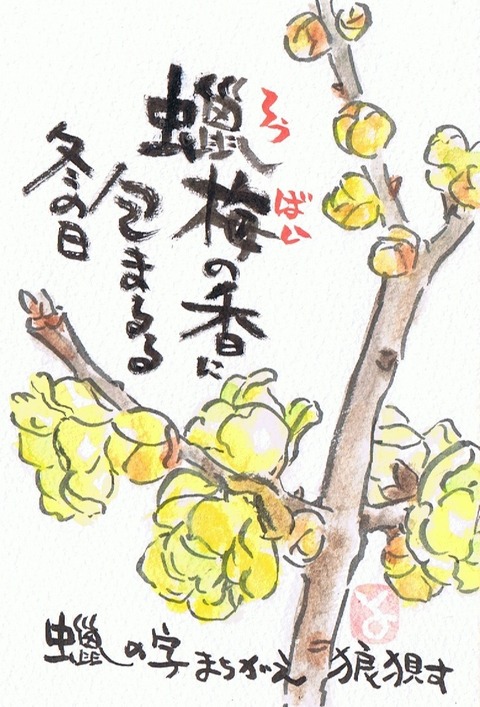 蠟梅の香に
ろう ばい
包まるる
冬の日
蠟の字まちがえ 狼狽す